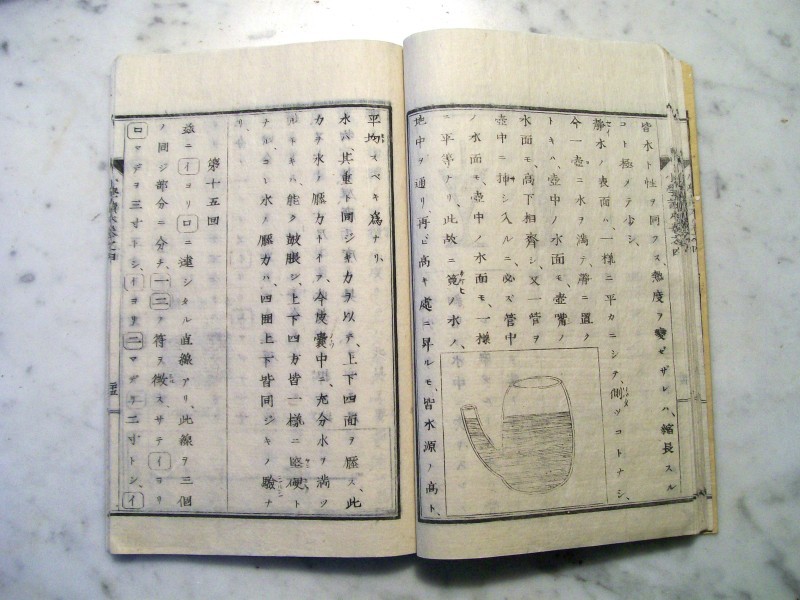 皆水ト性ヲ同クス、熱度ヲ變ゼザレハ、縮長スル
コト極メテ少シ、
靜水ノ表面ハ、一樣ニ平カニシテ、側ツコトナシ、
今一壺ニ水ヲ滿テ、此ニ置ク
トキハ、壺中ノ水面モ、壺嘴ノ
水面モ、高下相齊シ、又一管ヲ
壺中ニ挿シ入ルニ、必ズ管中
ノ水面モ、壺中ノ水面モ、一樣
ニ平準ナリ、此故ニ筧ノ水ノ、
地中ヲ通リ再ビ高キ處ニ昇ルモ、皆水源ノ高ト、
平均スベキ爲ナリ、
水ハ、其重ト同ジキ力ヲ以テ、上下四面ヲ壓ス、此
力ヲ水ト壓力トイフ、今度囊中ニ、充分水ヲ滿ツ
ルトキハ、能ク皷脹シ、上下四方皆一樣ニ堅硬ト
ナルコレ水ノ壓力ハ、四囲上下皆同ジキノ驗ナ
リ、
第十五回
茲ニイヨリロニ達シタル直線アリ、此線ヲ三個
ノ同ジ部分ニ分チ、一二ノ符ヲ微ス、サテイヨリ
ロマデヲ三寸トシ、イヨリ二マデヲ二寸トシ、イ